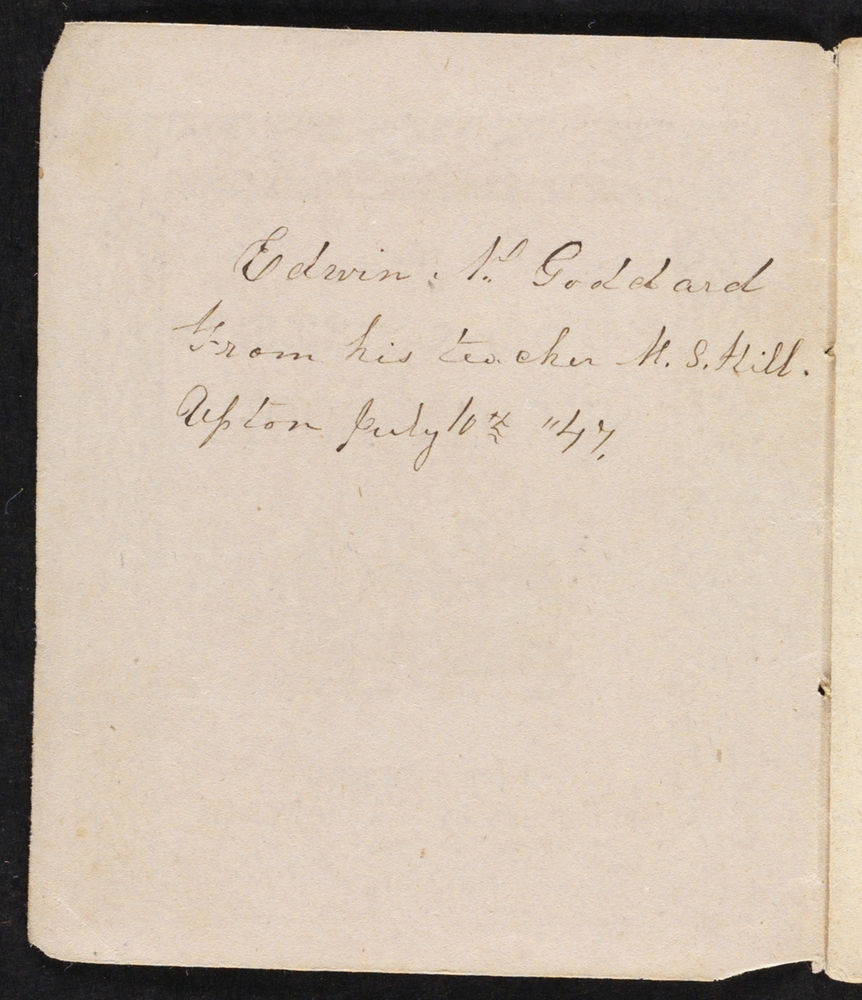 Edwin N. Goddard
From his teacher M. S. Hill.
Upton July 10th "47.